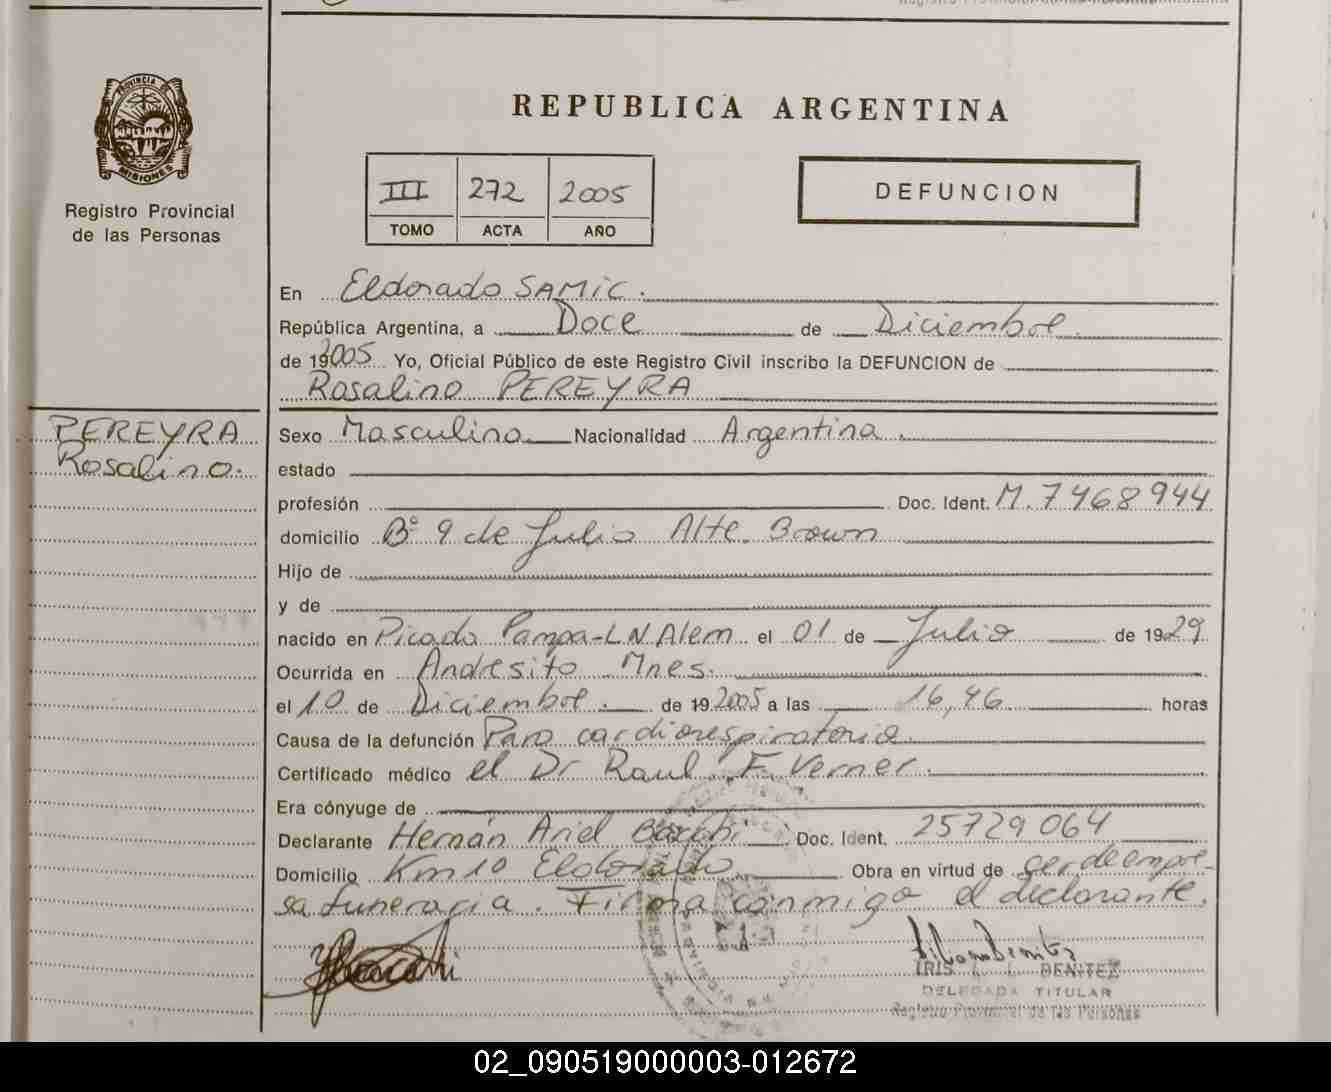 PROVINCIA DE
MISIONES
Registro Provincial
de las Personas
REPUBLICA ARGENTINA
III 272 2005
TOMO ACTA AÑO
DEFUNCION
En Eldorado SAMIC.
República Argentina, a Doce de Diciembre.
de 192005 Yo, Oficial Público de este Registro Civil inscribo la DEFUNCION de
Rosalino PEREYRA
PEREYRA
Rosalino.
Sexo Masculino Nacionalidad Argentina.
estado
profesión Doc. Ident. M. 7468944
domicilio Bº 9 de Julio Alte. Brown
Hijo de
y de
nacido en Picada Pampa-L N Alem el 01 de Julio de 1929
Ocurrida en Andresito Mnes.
el 10 de Diciembre. de 192005 a las 16,46 horas
Causa de la defunción Paro cardiorespiratorio.
Certificado médico el Dr Raul F. Verner.
Era cónyuge de
Declarante Hernán Ariel Doc. Ident. 25729064
Domicilio Km 10 Eldorado Obra en virtud de ser de empre-
sa funeraria. Firma conmigo el declarante.
IRIS BENITEZ
DELEGADA TITULAR
Registro Provincial de las Personas
02_090519000003-012672